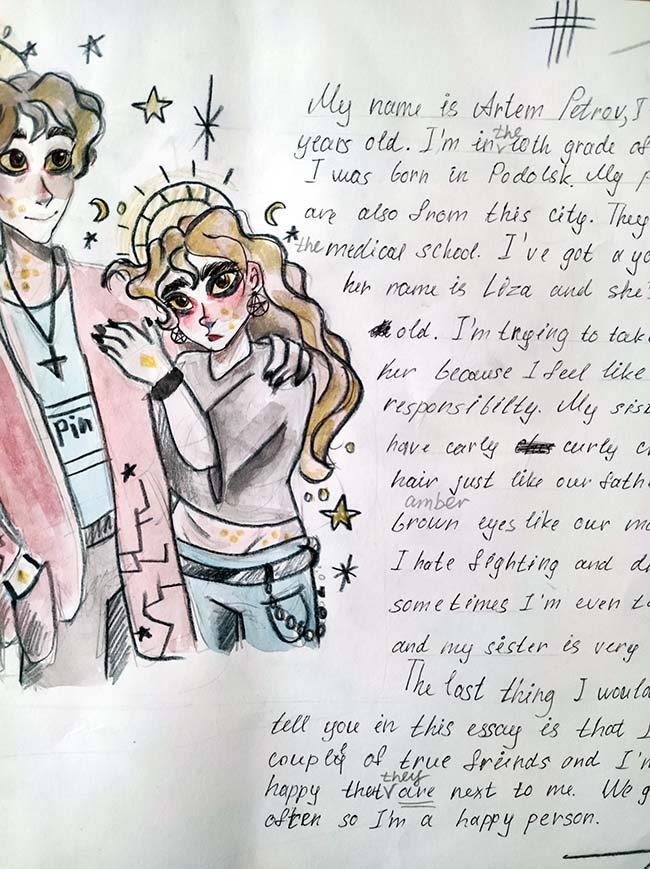 My name is Artem Petrov, I
years old. I'm in the 10th grade of
I was born in Podolsk. My p
are also from this city. They
the medical school. I've got a yo
her name is Liza and she'
old. I'm trying to take
her because I feel like
responsibilty. My sist
have carly curly c
hair just like our fath
amber
brown eyes like our mo
I hate fighting and d
sometimes I'm even t
and my sister is very
The last thing I would
tell you in this essay is that I
couple of true friends and I'm
happy that they are next to me. We g
often so I'm a happy person.
Pin